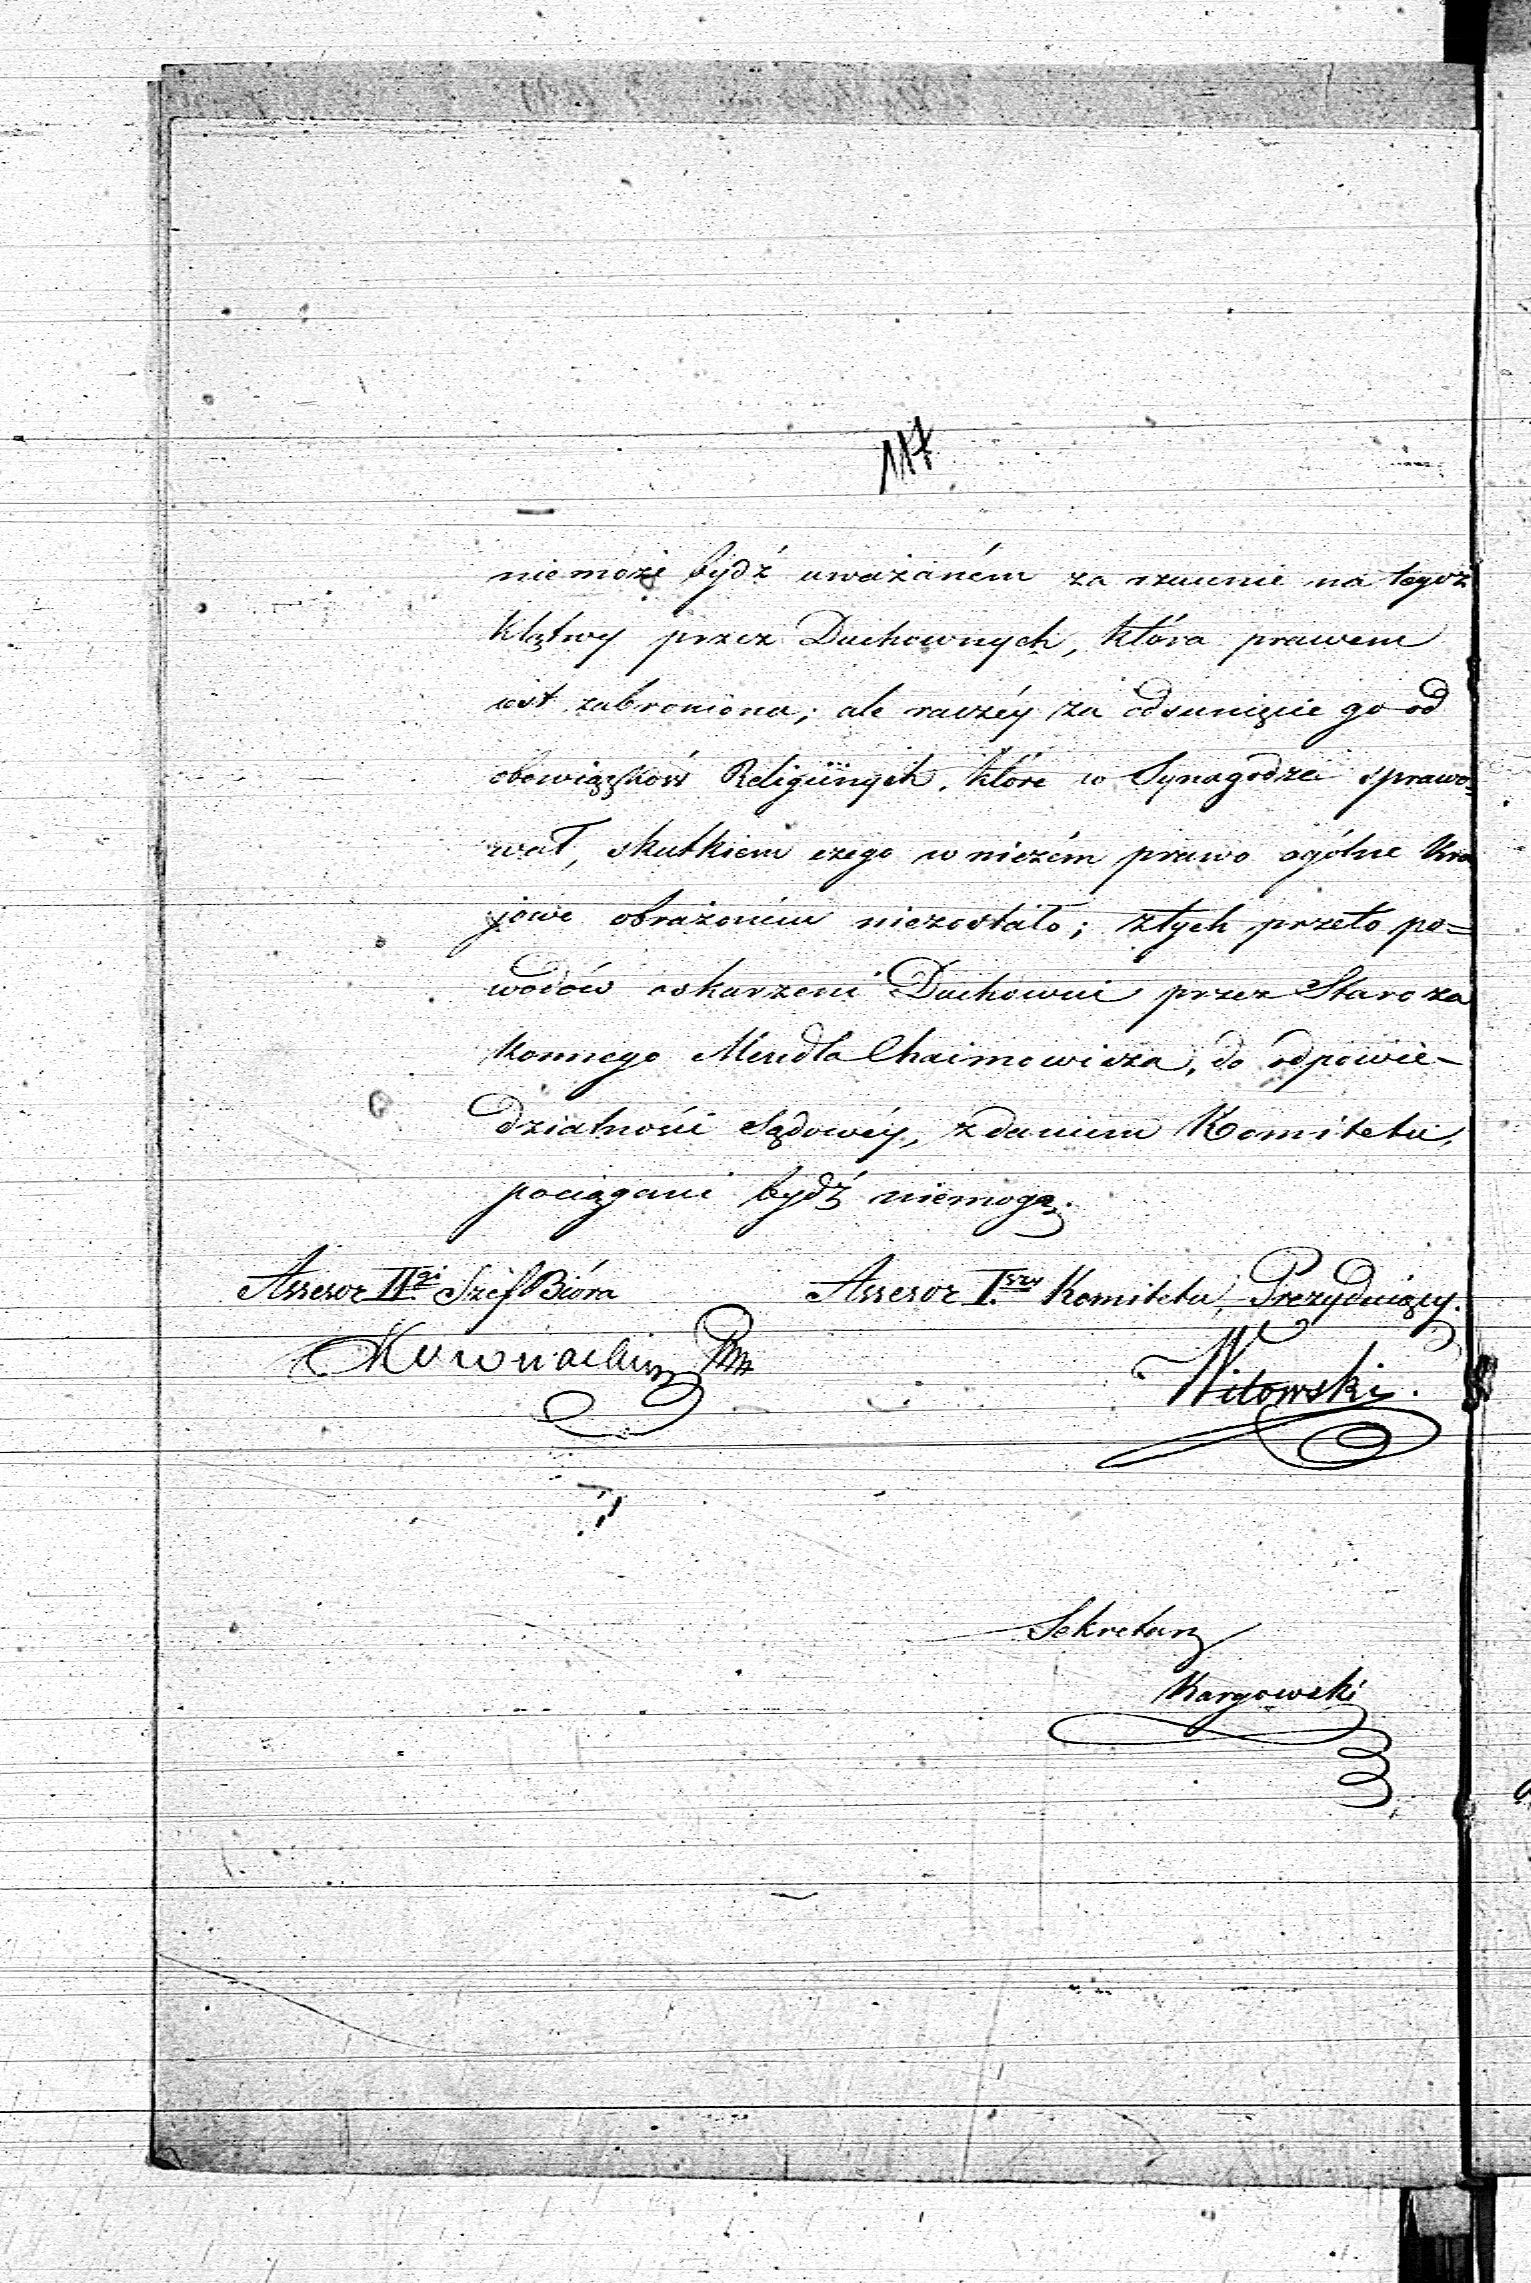 117
niemoże bydź uważaném za rzucenie na tegoż
klątwy przez Duchownych, która prawem
jest zabroniona; ale raczéy za odsunięcie go od
obowiązków Religiinych, które w Synagodze sprawo=
wał, skutkiem czego w niczém prawo ogólne Kra
jowe obrażoném niezostało; z tych przeto po=
wodów oskarzeni Duchowni przez Staroza
konnego Mendla Chaimowicza, do odpowie-
dzialności Sądowéy, zdaniem Komitetu,
pociągani bydź niemogą.
Assesor II.gi Szef Bióra
Assesor I.szy Komitetu, Prezyduiący.
Witowski.
Sekretarz
Kargowski